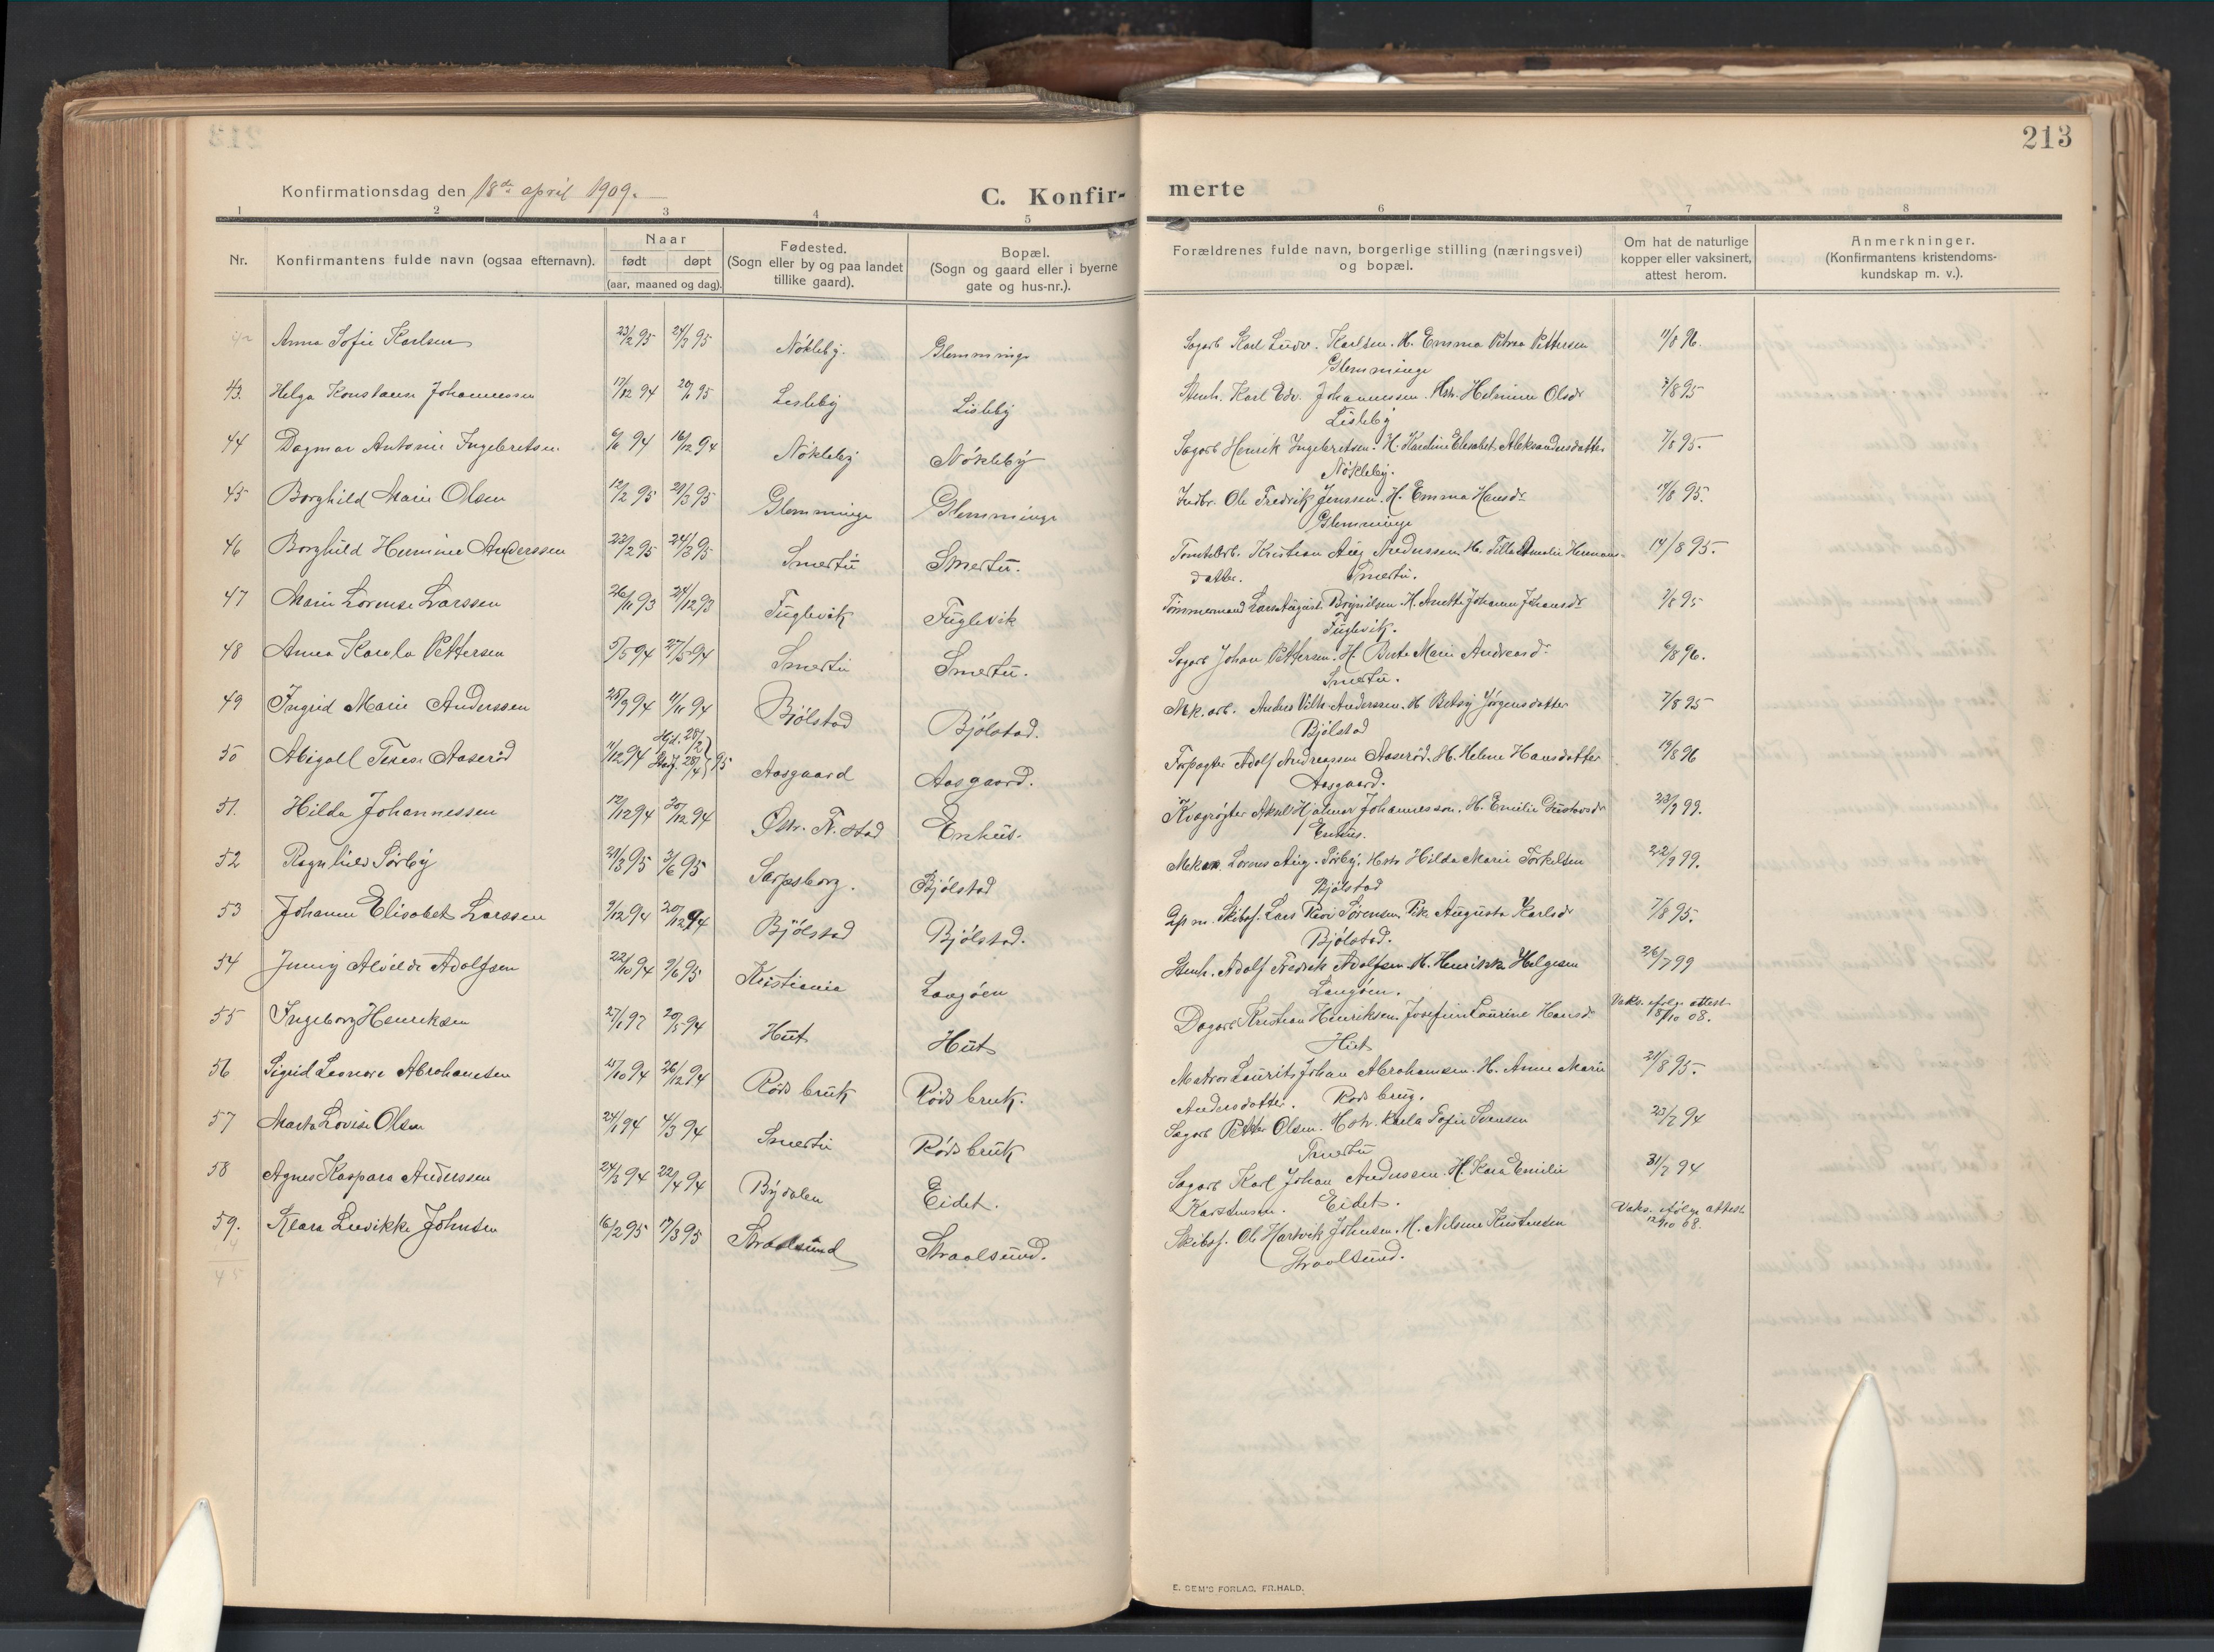 213
Konfirmationsdag den 18de april 1909.
C. Konfir-
merte
1 2 3 4 5 6 7 8
Nr.
Konfirmantens fulde navn (ogsaa efternavn).
Naar
født døpt
(aar, maaned og dag).
Fødested.
(Sogn eller by og paa landet
tillike gaard).
Bopæl.
(Sogn og gaard eller i byerne
gate og hus-nr.).
Forældrenes fulde navn, borgerlige stilling (næringsvei)
og bopæl.
Om hat de naturlige
kopper eller vaksinert,
attest herom.
Anmerkninger.
(Konfirmantens kristendoms-
kundskap m. v.).
42 Anna Sofie Karlsen 23/2 95 24/3 95 Nökleby. Glemminge Sagarb Karl Ludv. Karlsen. H. Emma Petrea Pettersen 11/8 96.
Glemminge
43. Helga Konstanse Johannessen 17/12 94 20/1 95 Lisleby Lisleby Stenh. Karl Edv. Johannessen. Hstr. Helmine Olsdr 7/8 95
Lisleby
44 Dagmar Antonie Ingebretsen 6/11 94 16/12 94 Nökleby Nökleby Sagarb Henrik Ingebretsen. H. Karoline Elisabet Aleksandersdatter 7/8 95.
Nökleby.
45 Borghild Marie Olsen 12/2 95 24/3 95 Glemminge Glemminge Indbr. Ole Fredrik Jenssen. H. Emma Hansdr 14/8 95.
Glemminge
46 Borghild Hermine Anderssen 23/2 95 24/3 95 Smertu Smertu. Tomtebrb. Kristian Aug Anderssen H. Tilla Amalie Hermans- 14/8 95.
datter. Smertu.
47 Marie Lorense Larssen 26/11 93 24/12 93 Fuglevik Fuglevik Tömmermand Lars August Brynilsen. H. Anette Johanne Johansdr 7/8 95
Fuglevik.
48 Anna Karola Pettersen 5/5 94 27/5 94 Smertu Smertu. Sagarb Johan Pettersen. H. Berte Marie Andreasdr 6/8 96.
Smertu.
49 Ingrid Marie Anderssen 25/9 94 11/11 94 Bjölstad Bjölstad. Mek. arb. Anders Vilh. Anderssen. H Betsy Jörgensdatter 7/8 95
Bjölstad
50 Abigall Terese Aaseröd 11/12 94 Hjd. 28/2 Stadf. 28/4 95 Aasgaard Aasgaard. Forpagter Adolf Andreassen Aaseröd. H. Helene Hansdatter 19/8 96
Aasgaard.
51. Hilda Johannessen 12/12 94 30/12 94 Östr. Fr.stad Enhus. Kvægrögter Aksel Hjalmar Johannesson. H. Emilie Gustavsdr 23/9 99.
Enhus.
52 Ragnhild Sörby 21/3 95 3/6 95 Sarpsborg. Bjölstad Mekan. Lorens Aug. Sörby. Hstr Hilda Marie Torkelsen 22/9 99.
Bjölstad
53 Johanne Elisabet Larssen 9/12 94 20/12 94 Bjölstad Bjölstad. Gift m. Skibsf. Lars Sörensen, Pike Augusta Karlsdr 7/8 95.
Bjölstad.
54 Jenny Alvilde Adolfsen 22/10 94 9/6 95 Kristiania Langöen Stenh. Adolf Fredrik Adolfsen. H. Henrikke Helgesen 26/7 99
Langöen.
55 Ingeborg Henriksen 27/1 92 20/5 94 Hut Hut Dagarb Kristian Henriksen. Josefine Laurine Hansdr Vaks. ifölge attest
18/10 08.
Hut
56 Sigrid Leonora Abrahamsen 25/10 94 26/12 94 Röds bruk Röds bruk. Matros Laurits Johan Abrahamsen. H. Anne Marie 21/8 95.
Andersdatter. Röds brug.
57 Marta Lovise Olsen 24/1 94 4/3 94 Smertu Röds bruk Sagarb Petter Olsen. Hstr. Karla Sofie Svensen 23/7 94
Smertu
58 Agnes Kaspara Anderssen 24/3 94 22/4 94 Bydalen Eidet. Sagarb Karl Johan Anderssen. H. Kaia Emilie 31/7 94
Karstensen. Eidet.
59. Klara Luvikke Johnsen 16/2 95 17/3 95 Straalsund Straalsund. Skibsf. Ole Hartvik Johnsen. H. Nilsine Kristensen Vaks. ifölge attest
12/10 08.
Straalsund.
45
E. SEM'S FORLAG. FR.HALD.